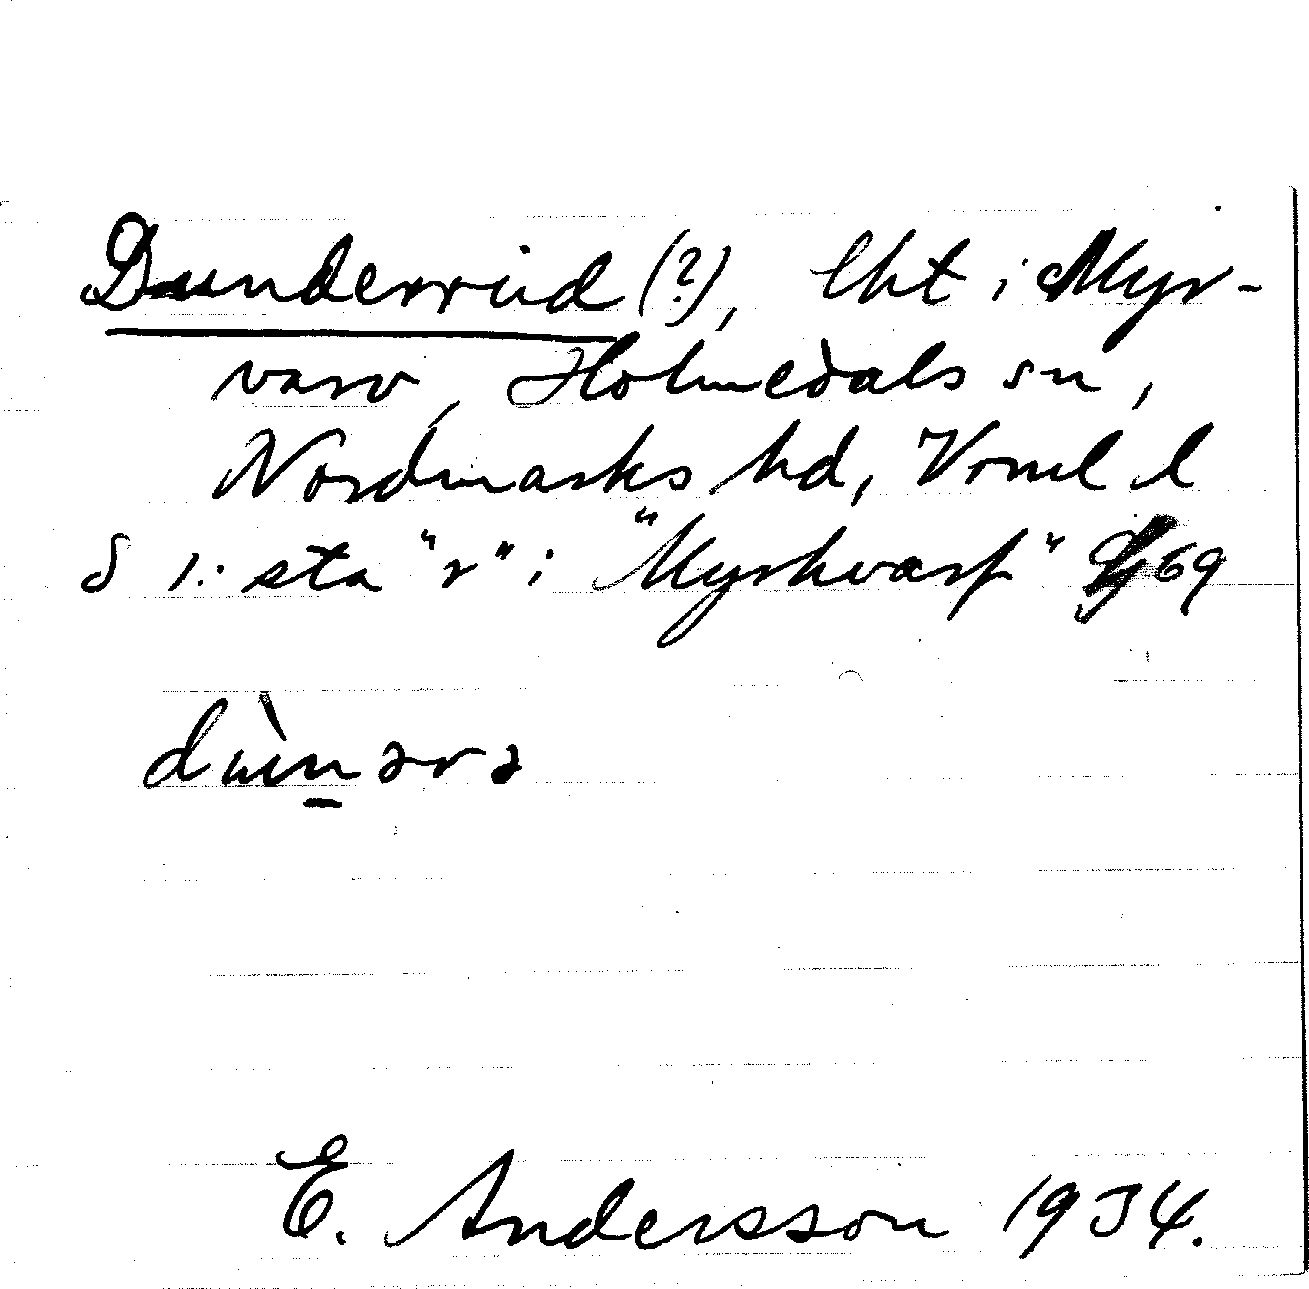 Dunderrud (?), lht i Myr-
varv, Holmedals sn,
Nordmarks hd, Vrml l
S 1. sta "r" i "Myrkvarf" 69
dùn̲ərə
E. Andersson 1934.